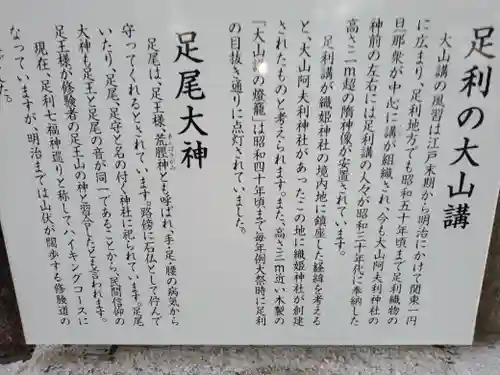 足利の大山講
大山講の風習は江戸末期から明治にかけて関東一円
に広まり、足利地方でも昭和五十年頃まで足利織物の
旦那衆が中心に講が組織され、今も大山阿夫利神社の
神前の左右には足利講の人々が昭和三十年代に奉納した
高さ二m超の隋神像が安置されています。
足利講が織姫神社の境内地に鎮座した経緯を考える
と、大山阿夫利神社があったこの地に織姫神社が創建
されたものと考えられます。また、高さ三m近い木製の
「大山講の燈籠」は昭和四十年頃まで毎年例大祭時に足利
の目抜き通りに点灯されていました。
足尾大神
足尾は、足王様、荒脛神とも呼ばれ、手・足・腰の病気から
守ってくれるとされています。路傍に石仏として佇んで
いたり、足尾、足守と名の付く神社に祀られています。足尾
大神も足王と足尾の音が同一であることから、民間信仰の
足王様が修験者の足王山の神と習合したとも言われます。
現在、足利七福神巡りと称して、ハイキングコースに
なっていますが、明治までは山伏が闊歩する修験道の